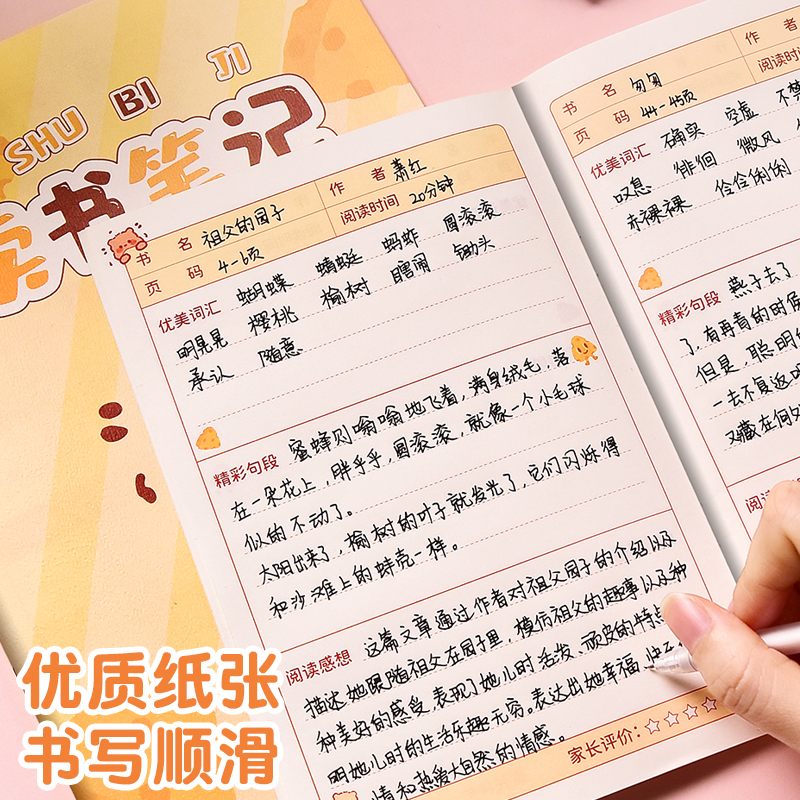 SHU BI JI
读书笔记
书 名 祖父的园子
作 者 萧红
页 码 4-6页
阅读时间 20分钟
优美词汇 蝴蝶 蜻蜓 蚂蚱 圆滚滚
明晃晃 樱桃 榆树 瞎闹 锄头
承认 随意
精彩句段 蜜蜂则嗡嗡地飞着，满身绒毛，落
在一朵花上，胖乎乎，圆滚滚，就像一个小毛球
似的不动了。
太阳出来了，榆树的叶子就发光了，它们闪烁得
和沙滩上的蚌壳一样。
阅读感想 这篇文章通过作者对祖父园子的介绍以及
描述她跟随祖父在园子里，模仿祖父的趣事以及种
种美好的感受表现了她儿时活发、顽皮的特点
明她儿时的生活乐趣无穷。表达出她幸福
情和热爱大自然的情感。
家长评价：
书 名 匆匆
作 者
页 码 44-45页
阅读时
优美词汇 确实 空虚 不禁
叹息 徘徊 微风
赤裸裸 伶伶俐俐
精彩句段 燕子去了
了，有再青的时候
但是，聪明的
一去不复返呢
又藏在何处
阅读
优质纸张
书写顺滑